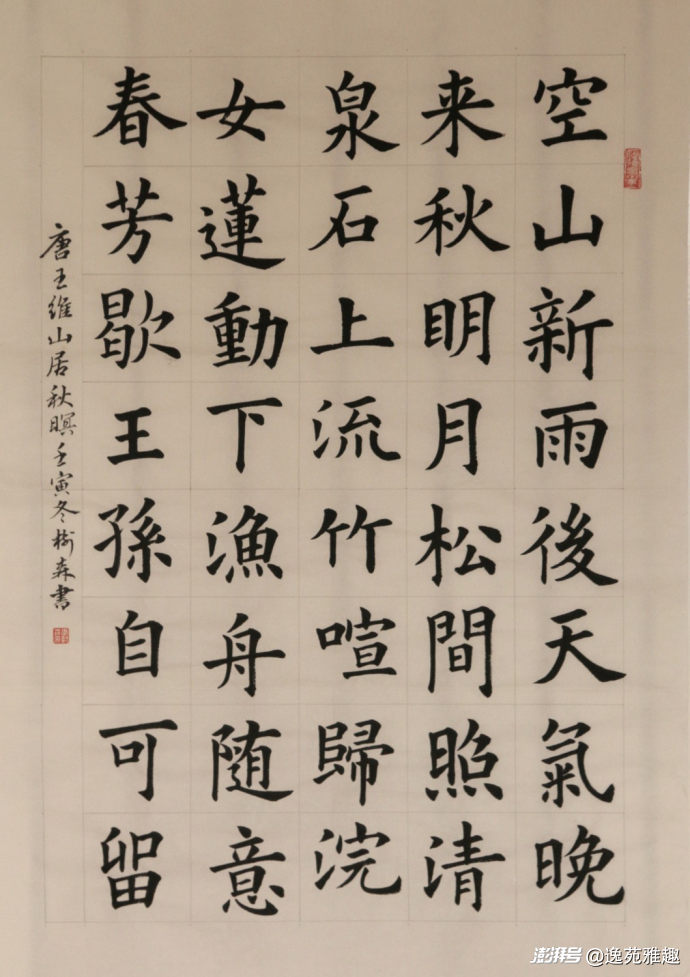 空山新雨後天氣晚
来秋明月松間照清
泉石上流竹喧歸浣
女蓮動下漁舟随意
春芳歇王孫自可留
唐王維山居秋暝壬寅冬树森書
澎湃号@逸苑雅趣